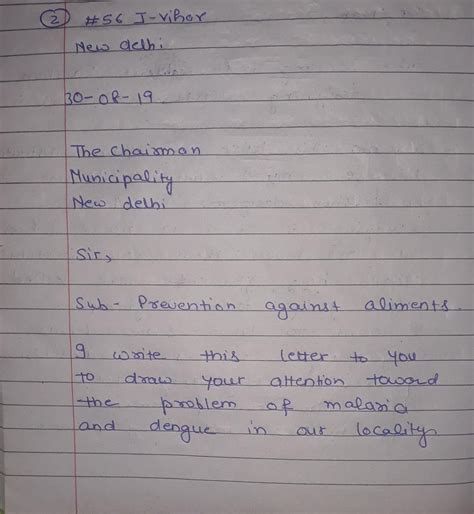 ② #56 J-vihar
New delhi
30-08-19
The Chairman
Municipality
New delhi
Sir,
Sub- Prevention against aliments.
I write this letter to you
to draw your attention toward
the problem of malaria
and dengue in our locality